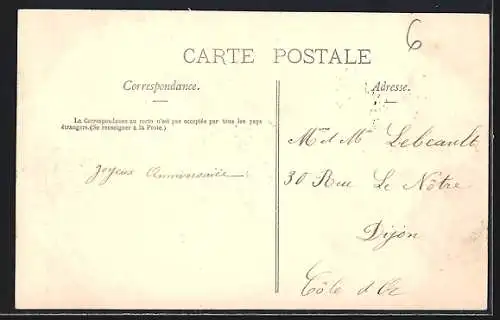 6
CARTE POSTALE
Correspondance.
Adresse.
La Correspondance au recto n'est pas acceptée par tous les pays
étrangers.(Se renseigner à la Poste.)
Joyeux Anniversaire
Mr et Mme
30 Rue Le Nôtre
Dijon
Côte d'Or